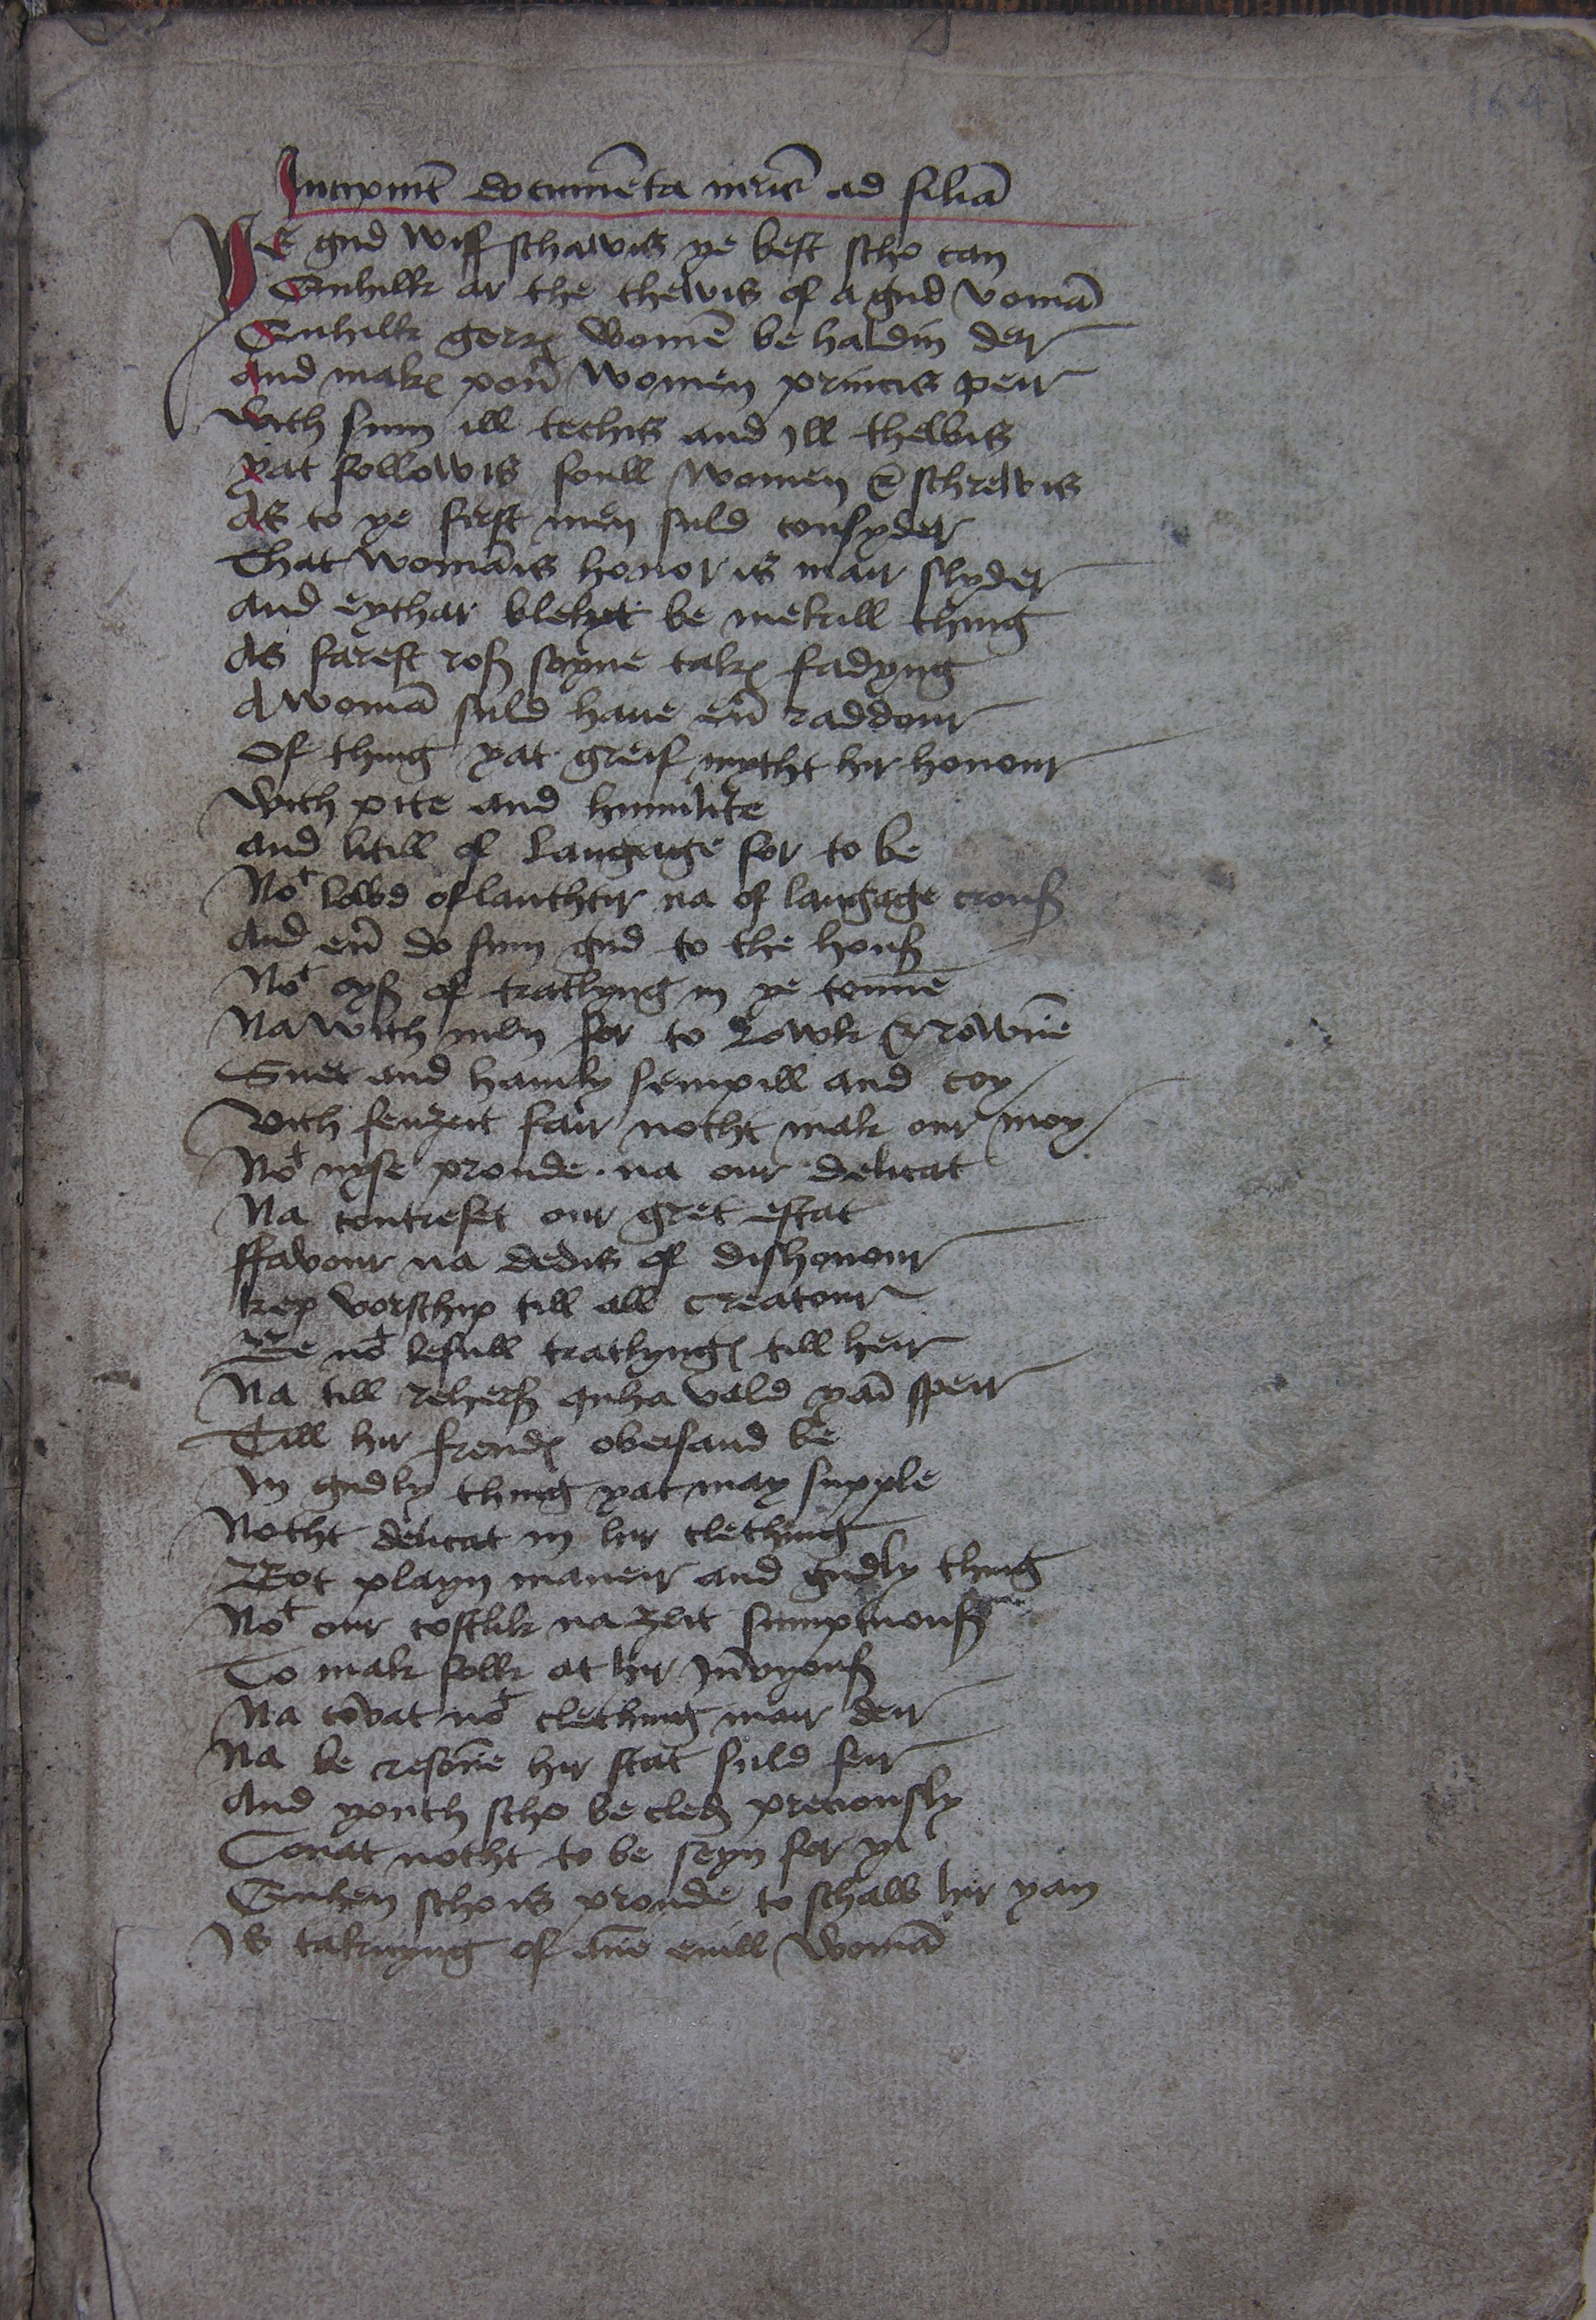 Incipiūt documēta mr̄is ad filiā
Ye gud wiff schawis ye best scho can
Quhilk ar the thewis of a gud vomā
Quhilk gerrꝭ womē be haldin deir
And makꝭ pouir women princis peir
With sum ill techis and Ill thewis
yat followis foull women & schrewis
As to ye first men suld consyder
That womānis honor is mair slyder
And eythar blekyt be mekill thing
As farest roß soyne takꝭ fadyng
A womā suld haue eu̅ raddour
Of thing yat greif mytht hir honour
With pite and humilite
And litill of langage for to be
Noᵗ lowd of lauthtir na of langage crouß
And eu̅ do sum gud to the houß
Noᵗ oyß of tratlyng in ye tounne
Na with men for to Rowk & rowne
Suet and hamly sempill and coy
With fenȝeit fair notht mak our moy
Noᵗ nyse proude na our delicat
Na contrefet our gret estat
ffavour na dedis of dishonour
kep vorschip till all creatour
Be noᵗ lefull tratlyngꝭ till heir
Na till reherß quha vald yaī speir
Till hir frendꝭ obersand be
In gudly thing yat may supple
Notht delicat in hir clething
Bot playn maneir and gudly thing
Noᵗ our costlik na ȝeit sumptuouß
To mak folk at hir Inwyouß
Na cōvat noᵗ clething mair deir
Na be resone hir stat suld feir
And youth scho be cled preciously
Couat notht to be seyn for yi
Quhen scho is proude to schaw hir yan
Is taknyng of ane euill womā